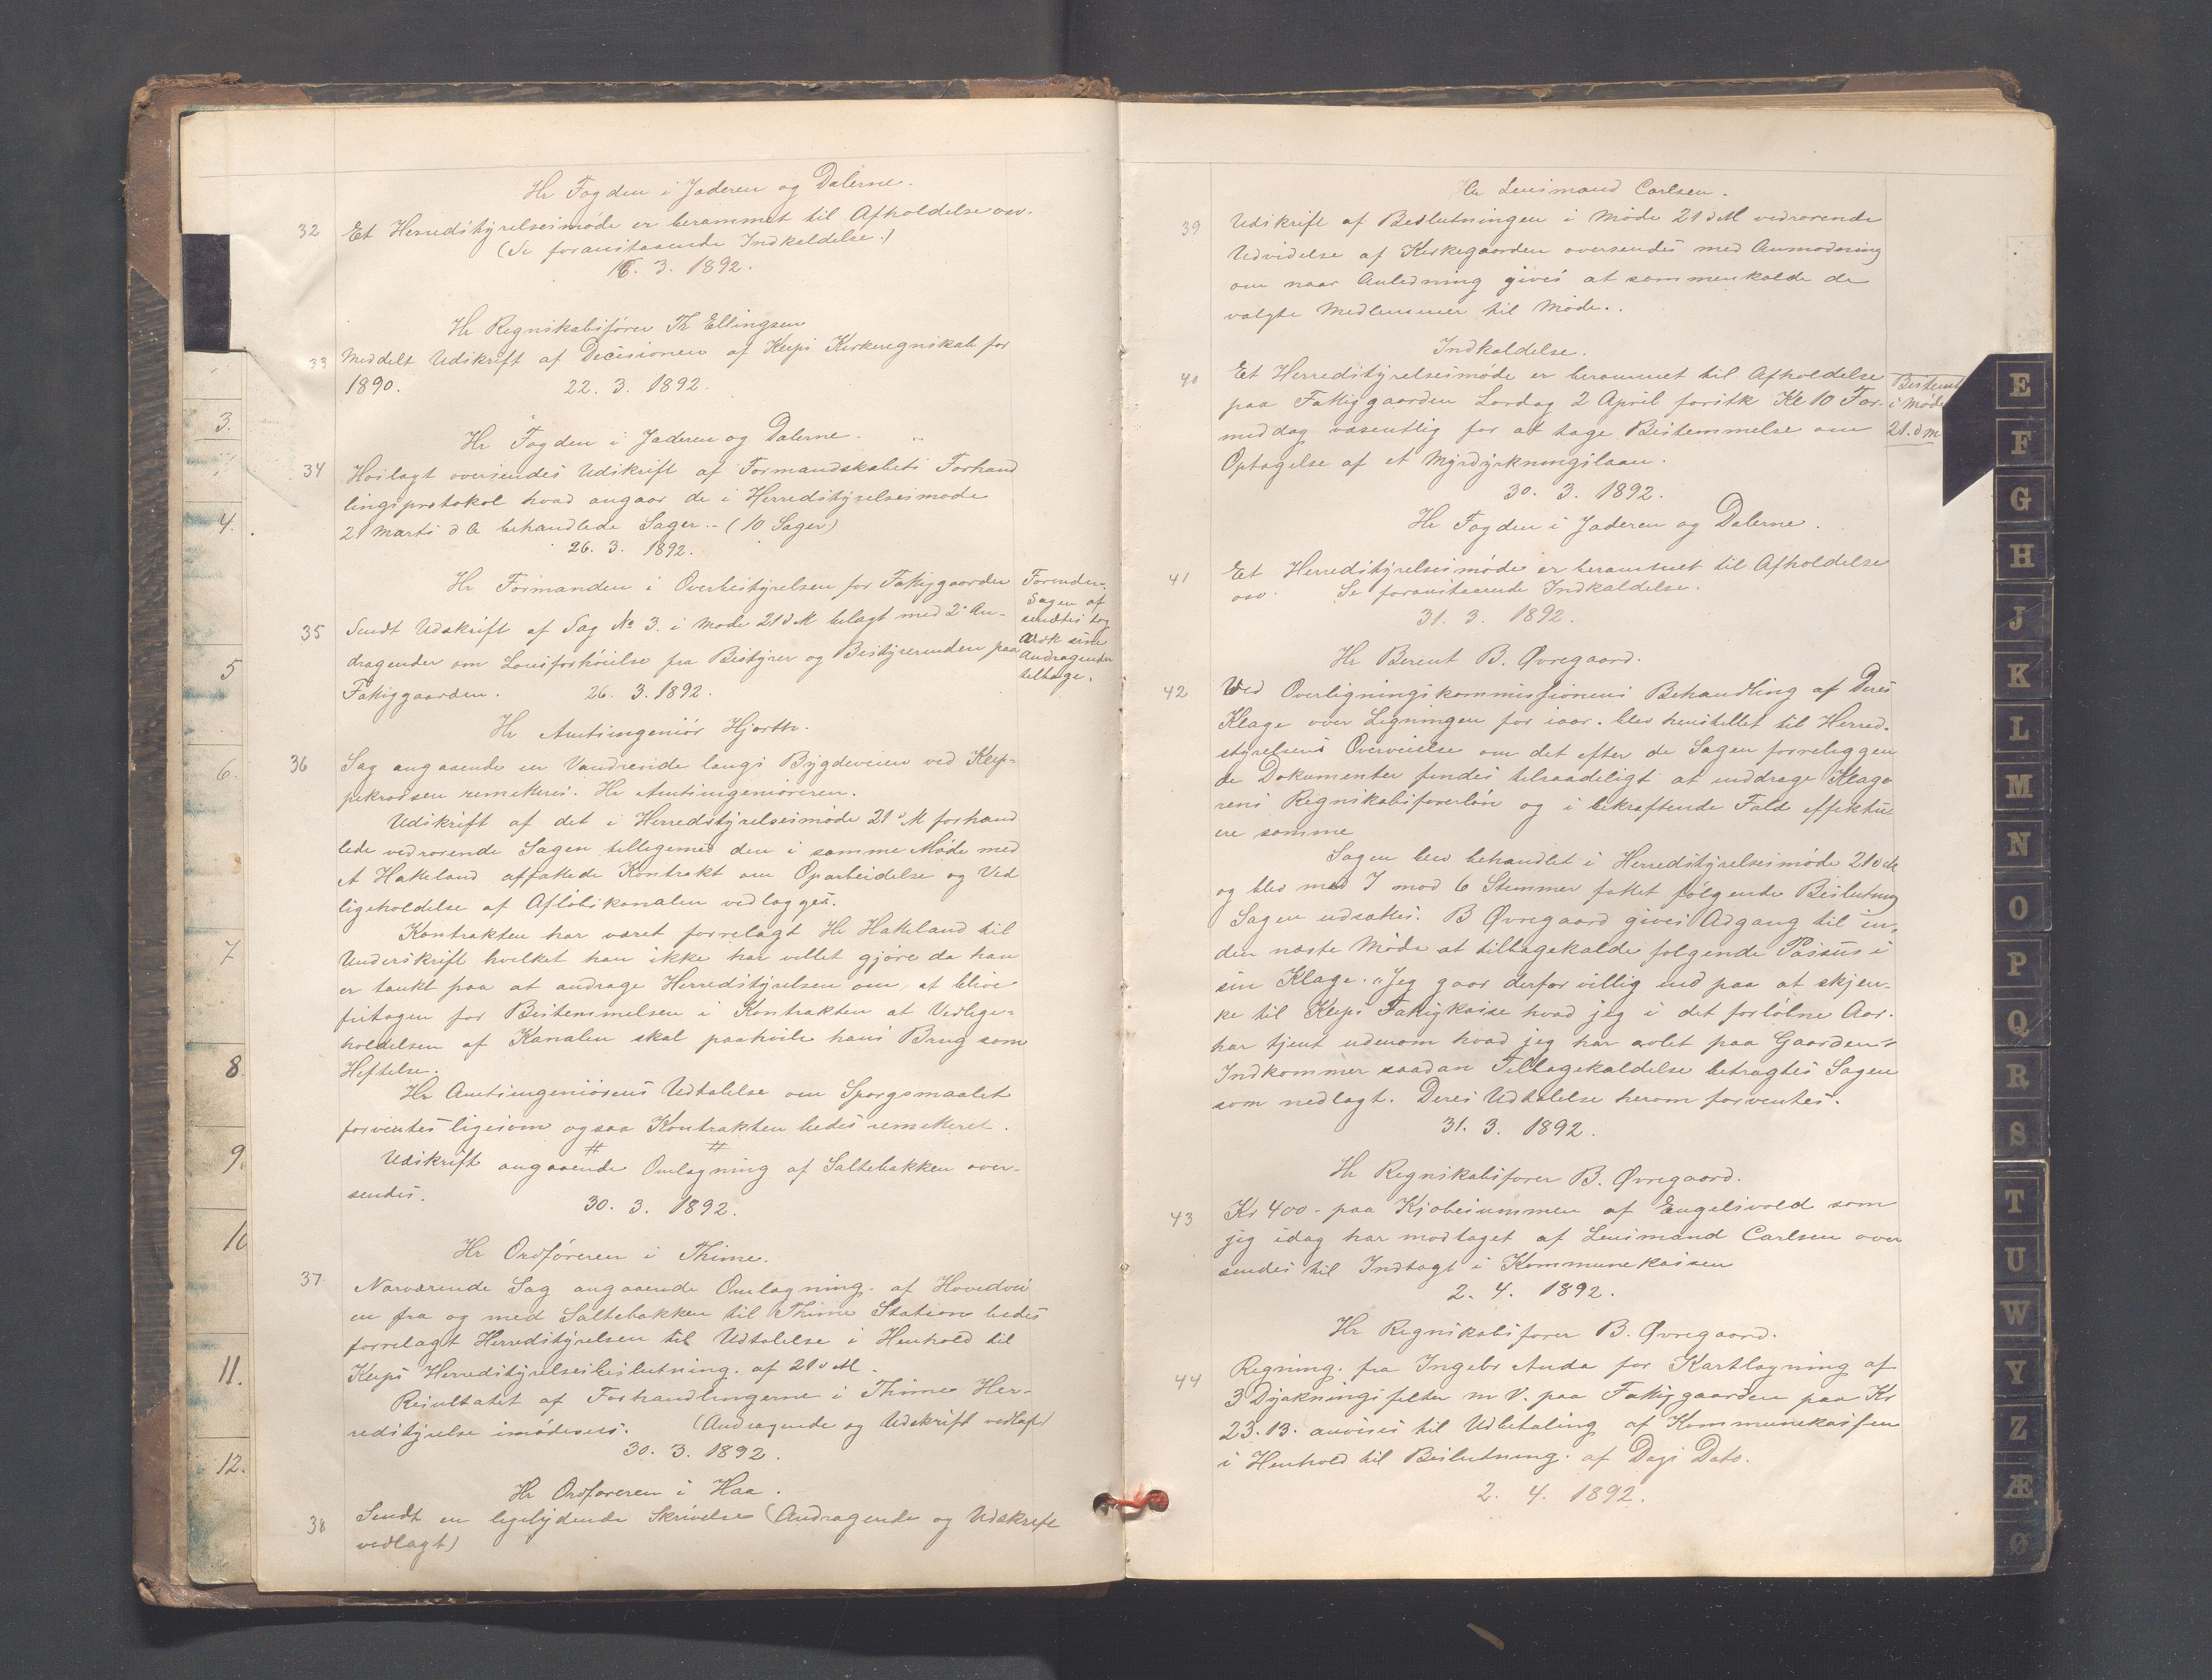 Hr Fogden i Jæderen og Dalerne.
32 Et Herredstyrelsesmøde er berammet til Afholdelse osv.
(Se foranstaaende Indkaldelse.)
16. 3. 1892.
Hr Regnskabsfører Th Ellingsen
33 Meddelt Udskrift af Decisionen af Kleps Kirkeregnskab for
1890. 22. 3. 1892.
Hr Fogden i Jæderen og Dalerne.
34 Hoslagt oversendes Udskrift af Formandskabets Forhand
lingsprotokol hvad angaar de i Herredstyrelsesmøde
21 Marts d A behandlede Sager.. (10 Sager)
26. 3. 1892.
Hr Formanden i Overbestyrelsen for Fattiggaarden
35 Sendt Udskrift af Sag No 3. i Møde 21 d M bilagt med 2 An-
dragender om Lønsforhøielse fra Bestyrer og Bestyrerinden paa
Fattiggaarden. 26. 3. 1892.
Forinden
Sagen af
sendtes tog
sine
Andragender
tilbage.
Hr Amtsingeniør Hjorth.
36 Sag angaaende en Vandrende langs Bygdeveien ved Klep-
pekrossen remitteres Hr Amtsingeniøren.
Udskrift af det i Herredstyrelsesmøde 21 d M forhand
lede vedrørende Sagen tilligemed den i samme Møde med
A Hatteland affattede Kontrakt om Oparbeidelse og Ved
ligeholdelse af Afløbskanalen vedlægges.
Kontrakten har været forelagt Hr Hatteland til
Underskrift hvilket han ikke har villet gjøre da han
er tænkt paa at andrage Herredstyrelsen om, at blive
fritagen for Bestemmelsen i Kontrakten at Vedlige-
holdelsen af Kanalen skal paahvile hans Brug som
Heftelse.
Hr Amtsingeniørens Udtalelse om Spørgsmaalet
forventes ligesom ogsaa Kontrakten bedes remitteret.
# #
Udskrift angaaende Omlægning af Saltebakken over-
sendes. 30. 3. 1892.
Hr Ordføreren i Thime.
37. Nærværende Sag angaaende Omlægning af Hovedvei
en fra og med Saltebakken til Thime Station bedes
forelagt Herredstyrelsen til Udtalelse i Henhold til
Kleps Herredstyrelsesbeslutning af 21 d M.
Resultatet af Forhandlingerne i Thime Her-
redstyrelse imødesees. (Andragende og Udskrift vedlagt)
30. 3. 1892.
Hr Ordføreren i Haa.
38 Sendt en ligelydende Skrivelse (Andragende og Udskrift
vedlagt)
Hr Lensmand Carlsen.
39 Udskrift af Beslutningen i Møde 21 d M vedrørende
Udvidelse af Kirkegaarden oversendes med Anmodning
om naar Anledning gives at sammenkalde de
valgte Medlemmer til Møde..
Indkaldelse.
40 Et Herredstyrelsesmøde er berammet til Afholdelse
paa Fattiggaarden Lørdag 2 April førstk Kl 10 For-
middag væsentlig for at tage Bestemmelse om
Optagelse af et Myrdyrkningslaan.
30. 3. 1892.
Bestemt
i Møde
21. d M
Hr Fogden i Jæderen og Dalerne.
41 Et Herredstyrelsesmøde er berammet til Afholdelse
osv. Se foranstaaende Indkaldelse.
31. 3. 1892.
Hr Berent B. Øvregaard.
42 Ved Overligningskommissionens Behandling af Deres
Klage over Ligningen for iaar blev henstillet til Herred-
styrelsens Overveielse om det efter de Sagen foreliggen
de Dokumenter findes tilraadeligt at inddrage Klage
rens Regnskabsførerløn og i bekræftende Fald effektu
ere samme
Sagen blev behandlet i Herredstyrelsesmøde 21 d M
og blev med 7 mod 6 Stemmer fattet følgende Beslutning
Sagen udsættes. B Øvregaard gives Adgang til in-
den næste Møde at tilbagekalde følgende Passus i
sin Klage. "Jeg gaar derfor villig ind paa at skjen-
ke til Kleps Fattigkasse hvad jeg i det forløbne Aar
har tjent udenom hvad jeg har avlet paa Gaarden"
Indkommer saadan Tilbagekaldelse betragtes Sagen
som nedlagt. Deres Udtalelse herom forventes.
31. 3. 1892.
Hr Regnskabsfører B. Øvregaard.
43 Kr 400- paa Kjøbesummen af Engelsvold som
jeg idag har modtaget af Lensmand Carlsen over
sendes til Indtægt i Kommunekassen
2. 4. 1892.
Hr Regnskabsfører B. Øvregaard.
44 Regning fra Ingebr Anda for Kartlægning af
3 Dyrkningsfelter m V. paa Fattiggaarden paa Kr
23.13. anvises til Udbetaling af Kommunekassen
i Henhold til Beslutning af Dags Dato.
2. 4. 1892.
3.
4.
5
6.
7
8.
9.
10
11.
12.
E
F
G
H
J
K
L
M
N
O
P
Q
R
S
T
U
W
Y
Z
Æ
Ø